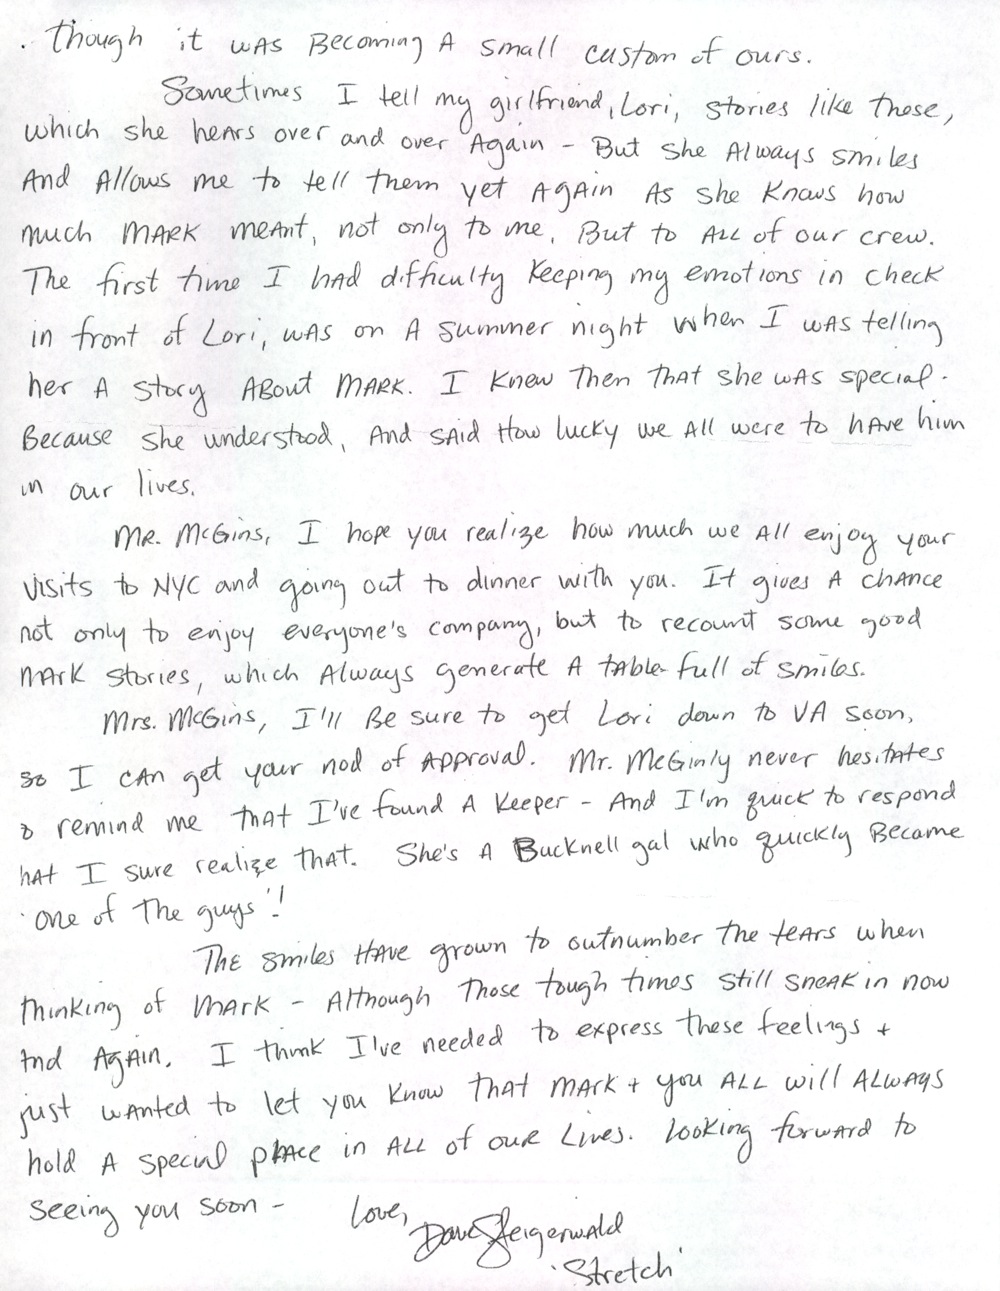 . though it was Becoming A small custom of ours.
Sometimes I tell my girlfriend, Lori, stories like these,
which she hears over and over Again - But she Always smiles
And Allows me to tell them yet Again As she Knows how
much MARK meant, not only to me, But to ALL of our crew.
The first time I had difficulty Keeping my emotions in check
in front of Lori, was on A summer night when I was telling
her A story ABout MARK. I Knew Then That she was special.
Because she understood, And said How lucky we All were to have him
in our lives.
Mr. McGins, I hope you realize how much we All enjoy your
visits to NYC and going out to dinner with you. It gives A chance
not only to enjoy everyone's company, but to recount some good
Mark stories, which Always generate A table full of smiles.
Mrs. McGins, I'll Be sure to get Lori down to VA soon,
so I can get your nod of Approval. Mr. McGinly never hesitates
o remind me that I've found A Keeper - And I'm quick to respond
hat I sure realize that. She's A Bucknell gal who quickly Became
'one of The guys'!
The smiles Have grown to outnumber the tears when
thinking of Mark - Although Those tough times still sneak in now
And Again. I think I've needed to express these feelings +
just wanted to let you Know that Mark + you ALL will ALWAYS
hold A special place in ALL of our Lives. Looking forward to
seeing you soon - Love,
Dave Steigerwald
'Stretch'